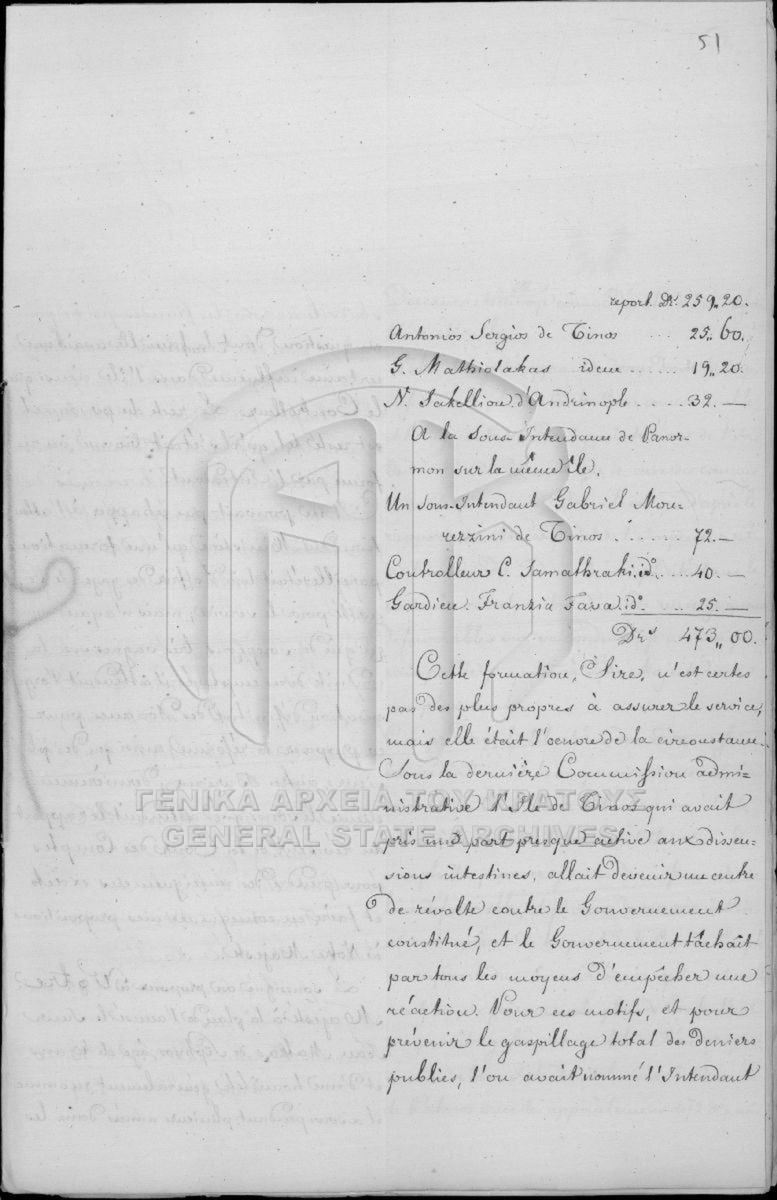 51
report. Drs. 259,,20.
Antonios Sergios de Tinos .... 25,,60.
G. Mathiolakas idem ...... 19,,20.
N. Sakelliou d'Andrinople .... 32.—
A la Sous-Intendance de Panor-
mon sur la même île.
Un Sous-Intendant Gabriel Mou-
rezzini de Tinos ...... 72.—
Controlleur C. Samathraki. ido. .... 40.—
Gardien. Franzia Fava. ido. ... 25.—
Drs 473,,00.
Cette formation, Sire, n'est certes
pas des plus propres à assurer le service,
mais elle était l'oeuvre de la circonstance.
Sous la dernière Commission admi-
nistrative l'Ile de Tinos qui avait
pris une part presque active aux dissen-
sions intestines, allait devenir un centre
de révolte contre le Gouvernement
constitué, et le Gouvernement tâchait
par tous les moyens d'empêcher une
réaction. Pour ces motifs, et pour
prévenir le gaspillage total des deniers
publics, l'on avait nommé l'Intendant
ΓΕΝΙΚΑ ΑΡΧΕΙΑ ΤΟΥ ΚΡΑΤΟΥΣ
GENERAL STATE ARCHIVES